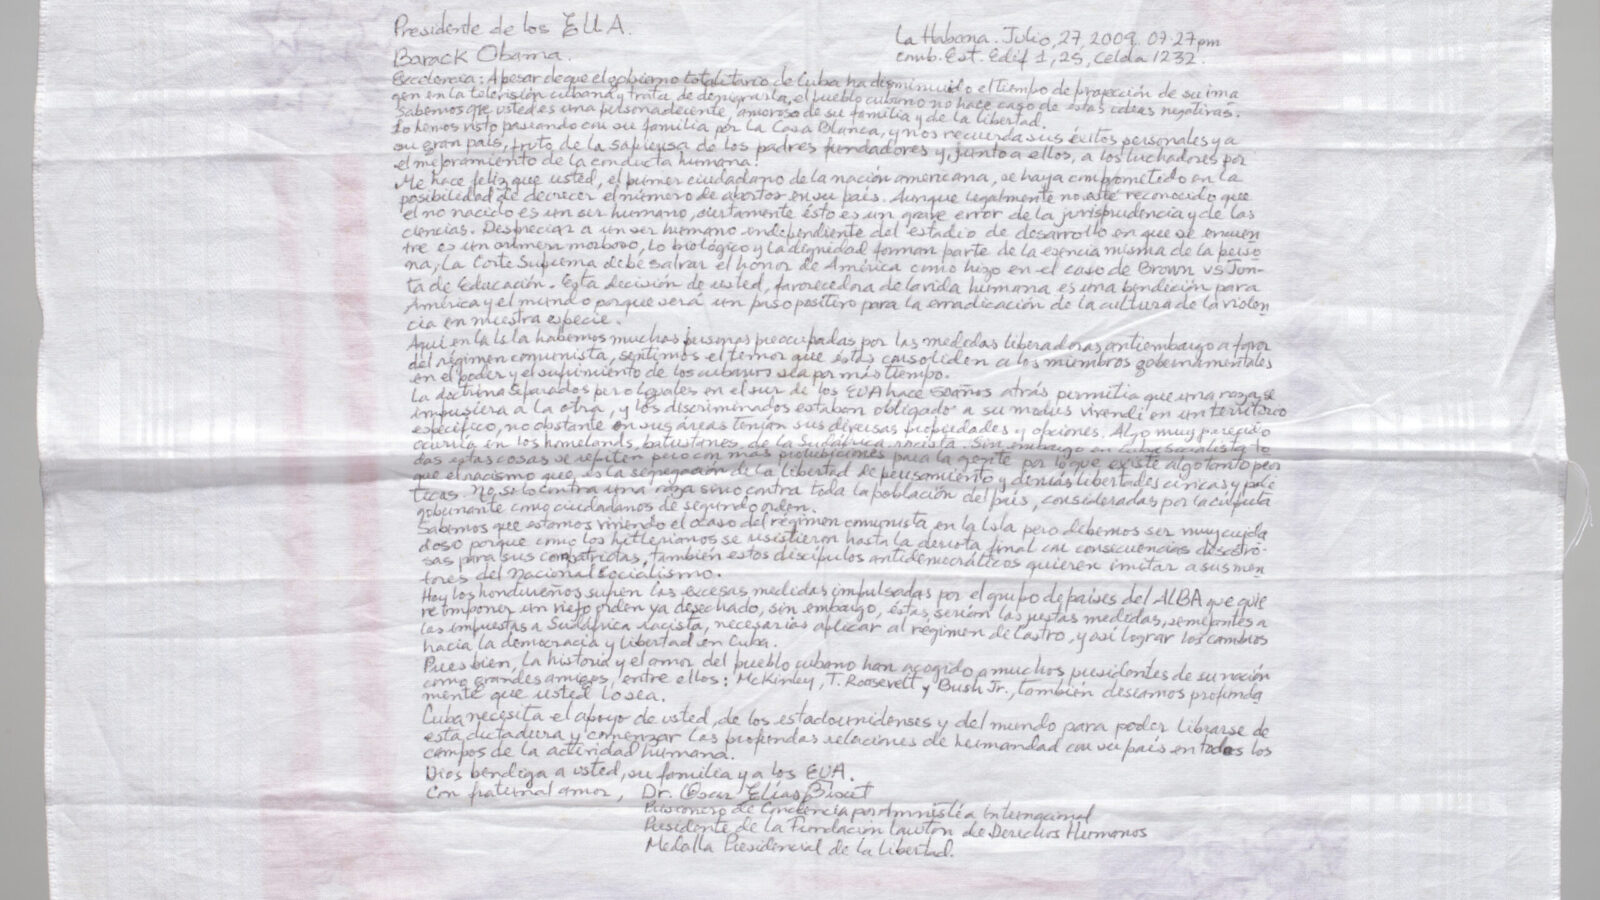 Presidente de los EUA.
La Habana. Julio, 27, 2009. 07:27 pm
Barack Obama.
Comb. Est. Edif 1, 2S, Celda 1232.
Excelencia: A pesar de que el gobierno totalitario de Cuba ha disminuido el tiempo de proyección de su ima
gen en la televisión cubana y trata de denigrarla, el pueblo cubano no hace caso de estas ideas negativas.
Sabemos que usted es una persona decente, amorosa de su familia y de la libertad.
Lo hemos visto paseando con su familia por la Casa Blanca, y nos recuerda sus éxitos personales y a
su gran país, fruto de la sapiensa de los padres fundadores y, junto a ellos, a los luchadores por
el mejoramiento de la conducta humana!
Me hace feliz que usted, el primer ciudadano de la nación americana, se haya comprometido en la
posibilidad de decrecer el número de abortos en su país. Aunque legalmente no esté reconocido que
el no nacido es un ser humano, ciertamente ésto es un grave error de la jurisprudencia y de las
ciencias. Despreciar a un ser humano independiente del estadio de desarrollo en que se encuen
tre es un crimen morboso, lo biológico y la dignidad forman parte de la esencia misma de la perso
na, la Corte Suprema debe salvar el honor de América como hizo en el caso de Brown vs Jun-
ta de Educación. Esta decisión de usted, favorecedora de la vida humana es una bendición para
América y el mundo porque será un paso positivo para la erradicación de la cultura de la violen
cia en nuestra especie.
Aquí en la Isla habemos muchas personas preocupadas por las medidas liberadoras antiembargo a favor
del régimen comunista, sentimos el temor que éstas consoliden a los miembros gobernamentales
en el poder y el sufrimiento de los cubanos sea por más tiempo.
La doctrina Separados pero Iguales en el sur de los EUA hace 50 años atrás permitía que una raza se
impusiera a la otra, y los discriminados estaban obligado a su modus vivendi en un territorio
específico, no obstante en sus áreas tenían sus diversas propiedades y opciones. Algo muy parecido
ocurría en los homelands, batustanes, de la Sudáfrica racista. Sin embargo en Cuba Socialista to
das estas cosas se repiten pero con más prohibiciones para la gente por lo que existe algo tanto peor
que el racismo que es la segregación de la libertad de pensamiento y demás libertades cívicas y polí
ticas. No solo contra una raza sino contra toda la población del país, consideradas por la cúpula
gobernante como ciudadanos de segundo orden.
Sabemos que estamos viviendo el ocaso del régimen comunista en la Isla pero debemos ser muy cuida
doso porque como los hitlerianos se resistieron hasta la derrota final con consecuencias desastro-
sas para sus compatriotas, también estos discípulos antidemocráticos quieren imitar a sus men
tores del Nacional Socialismo.
Hoy los hondureños sufren las excesas medidas impulsadas por el grupo de países del ALBA que quie
re imponer un viejo orden ya desechado, sin embargo, éstas serían las justas medidas, semejantes a
las impuestas a Sudáfrica racista, necesarias aplicar al régimen de Castro, y así lograr los cambios
hacia la democracia y libertad en Cuba.
Pues bien, la historia y el amor del pueblo cubano han acogido a muchos presidentes de su nación
como grandes amigos, entre ellos: McKinley, T. Roosevelt y Bush Jr., también deseamos profunda
mente que usted lo sea.
Cuba necesita el apoyo de usted, de los estadounidenses y del mundo para poder librarse de
esta dictadura y comenzar las profundas relaciones de hermandad con su país en todos los
campos de la actividad humana.
Dios bendiga a usted, su familia y a los EUA.
Con fraternal amor, Dr. Oscar Elías Biscet
Prisionero de Conciencia por Amnistía Internacional
Presidente de la Fundación Lawton de Derechos Humanos
Medalla Presidencial de la Libertad.